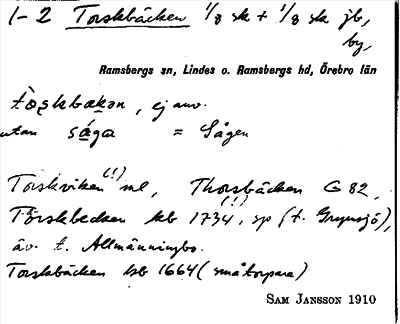 1-2 Torskbäcken 1/8 sk + 1/8 sk jb,
by,
Ramsbergs sn, Lindes o. Ramsbergs hd, Örebro län
tòskbækan, ej anv.
utan såga = Sågen
Torskviken (!) ml, Thorsbäcken G 82,
Törskbecken kb 1734 (!), sp (t. Gryssjö),
äv. t. Allmänningbo.
Torskbäcken kb 1664 (småtorpare)
SAM JANSSON 1910